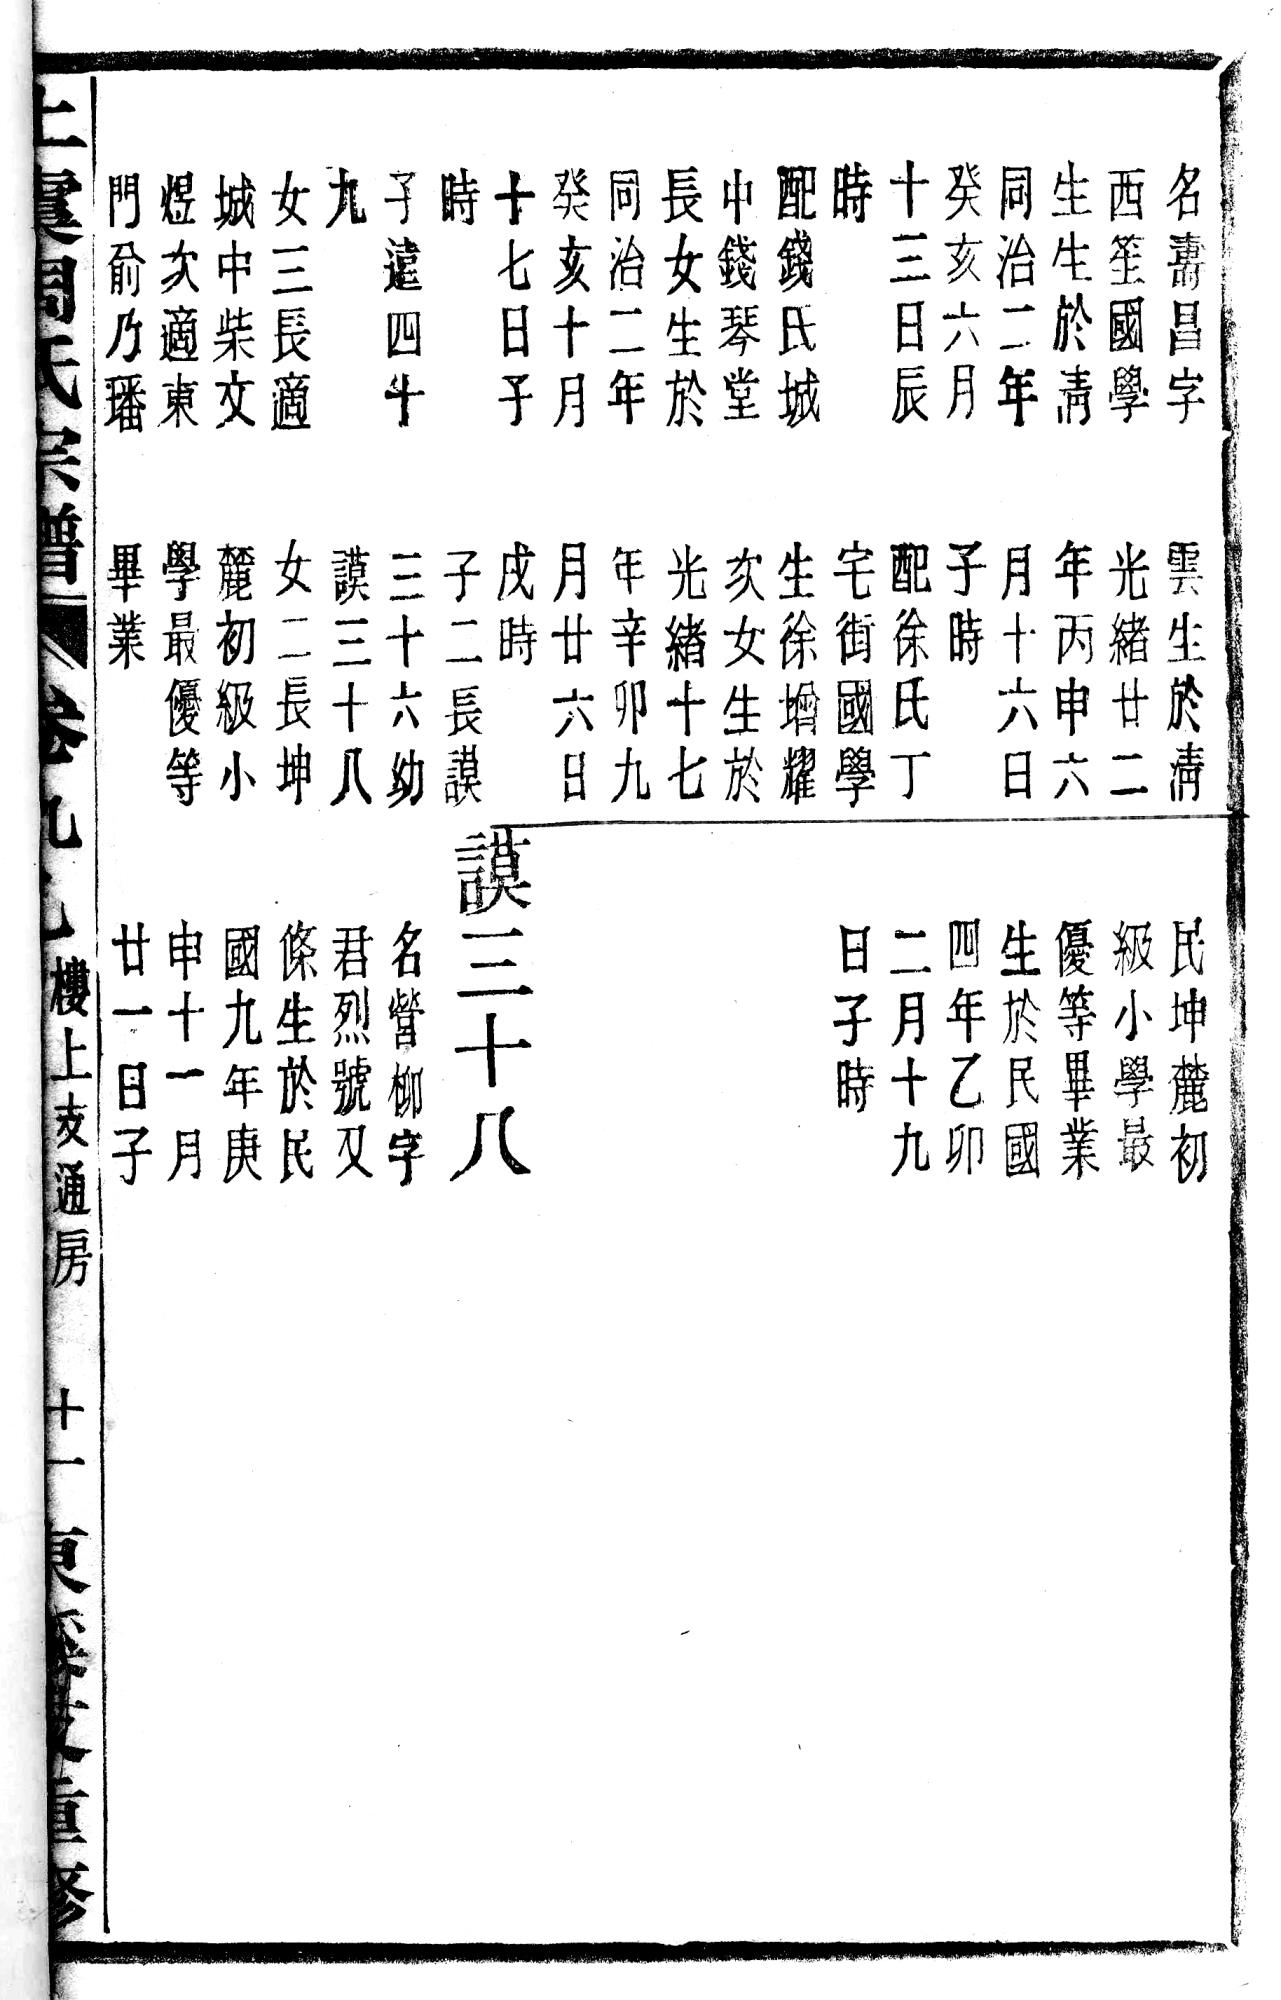 名壽昌字
西笙國學
生生於清
同治二年
癸亥六月
十三日辰
時
配錢氏城
中錢琴堂
長女生於
同治二年
癸亥十月
十七日子
時
子遠四十
九
女三長適
城中柴文
煜次適東
門俞乃璠
雲生於淸
光緒廿二
年丙申六
月十六日
子時
配徐氏丁
宅街國學
生徐增耀
次女生於
光緒十七
年辛卯九
月廿六日
戌時
子二長謨
三十六幼
謨三十八
女二長坤
麓初級小
學最優等
畢業
民坤麓初
級小學最
優等畢業
生於民國
四年乙卯
二月十九
日子時
謨三十八
名營柳字
君烈號又
條生於民
國九年庚
申十一月
廿一日子
上虞周氏宗譜
卷九
樓上支通房
十一
重修